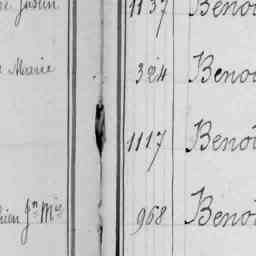 Justin 1137 Benoi
Marie 324 Benoi
1117 Benoi
Jn Mie 968 Benoi